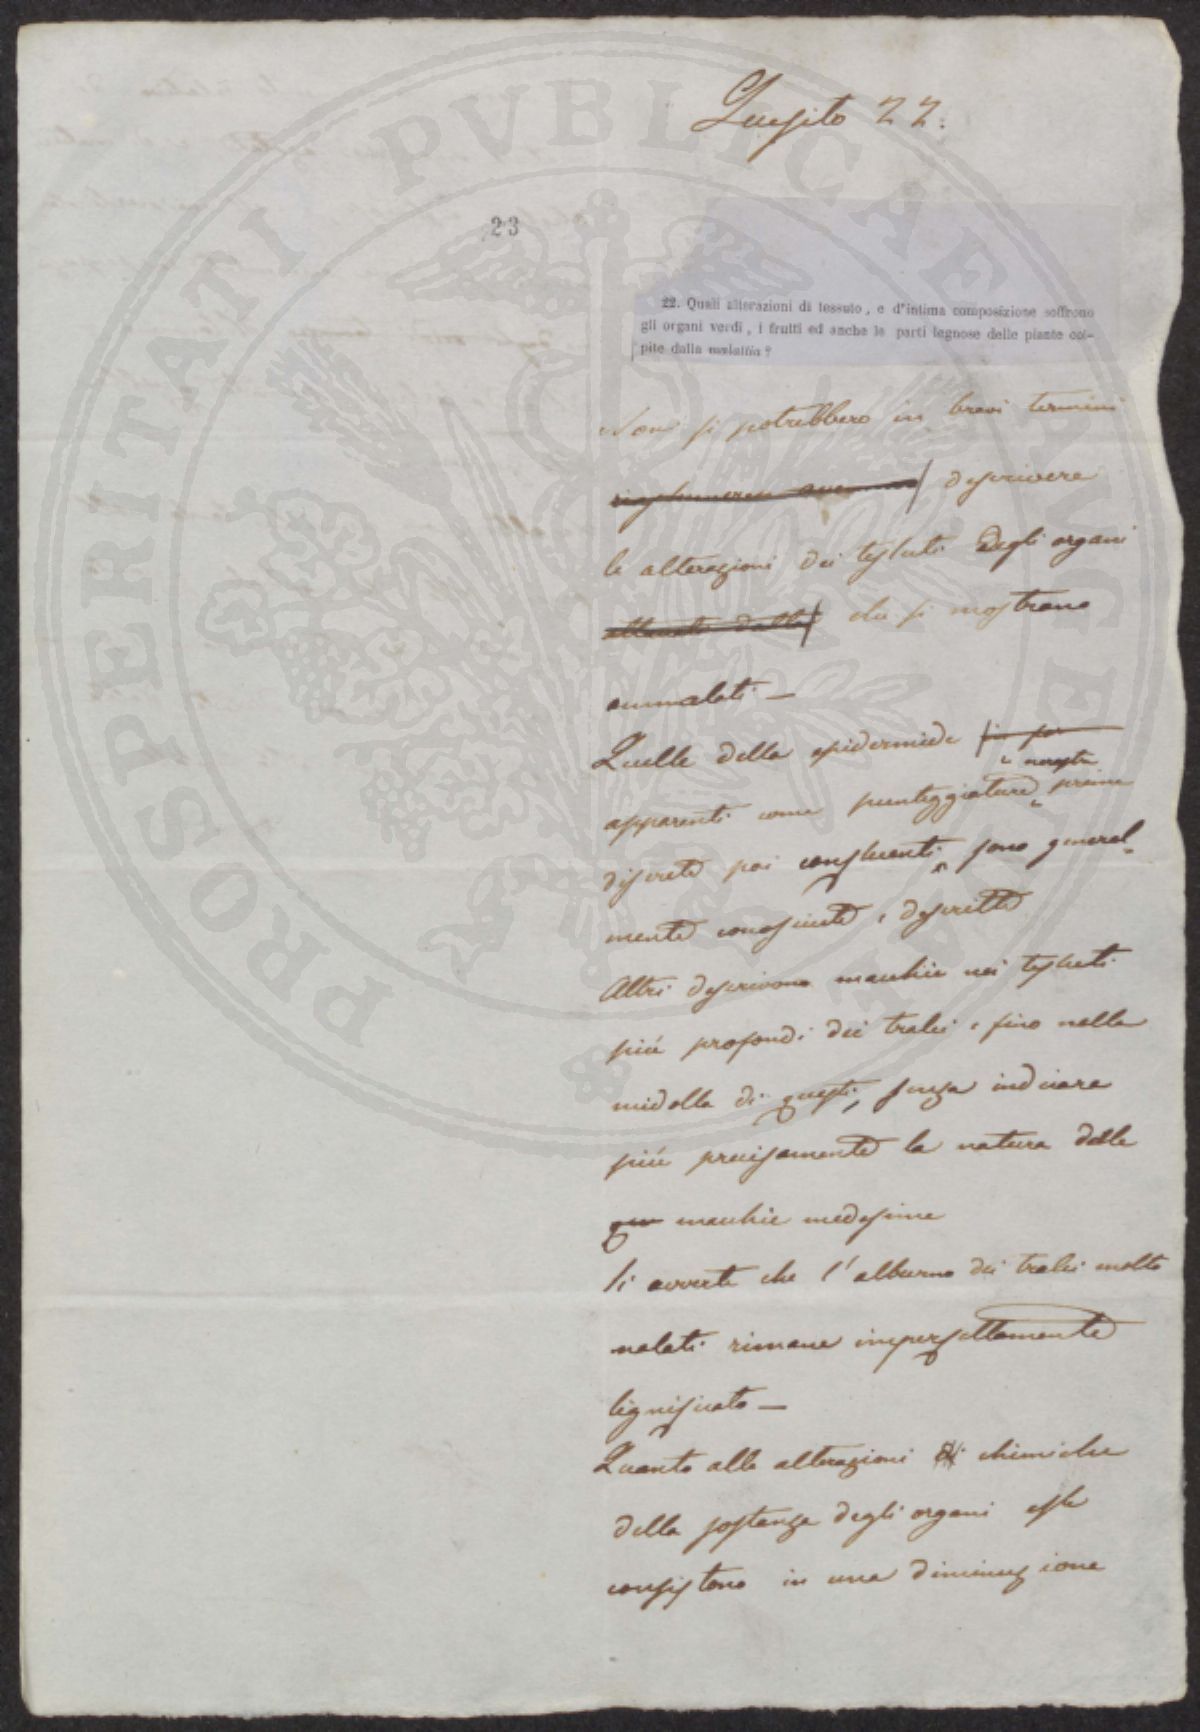 Quesito 22.
23
22. Quali alterazioni di tessuto, e d'intima composizione soffrono
gli organi verdi, i frutti ed anche le parti legnose delle piante col-
pite dalla malattia?
Non si potrebbero in brevi termini
descrivere
le alterazioni dei tessuti degli organi
che si mostrano
ammalati —
Quelle della epidermide
apparenti come punteggiature prime
discrete poi confluenti, sono general-
mente conosciute e descritte
Altri descrivono macchie nei tessuti
più profondi dei tralci e fino nella
midolla di questi, senza indicare
più precisamente la natura delle
macchie medesime
Si avverte che l'alburno dei tralci molto
malati rimane imperfettamente
lignificato —
Quanto alle alterazioni chimiche
della sostanza degli organi esse
consistono in una diminuzione
PROSPERITATI PVBLICAE AVGENDAE